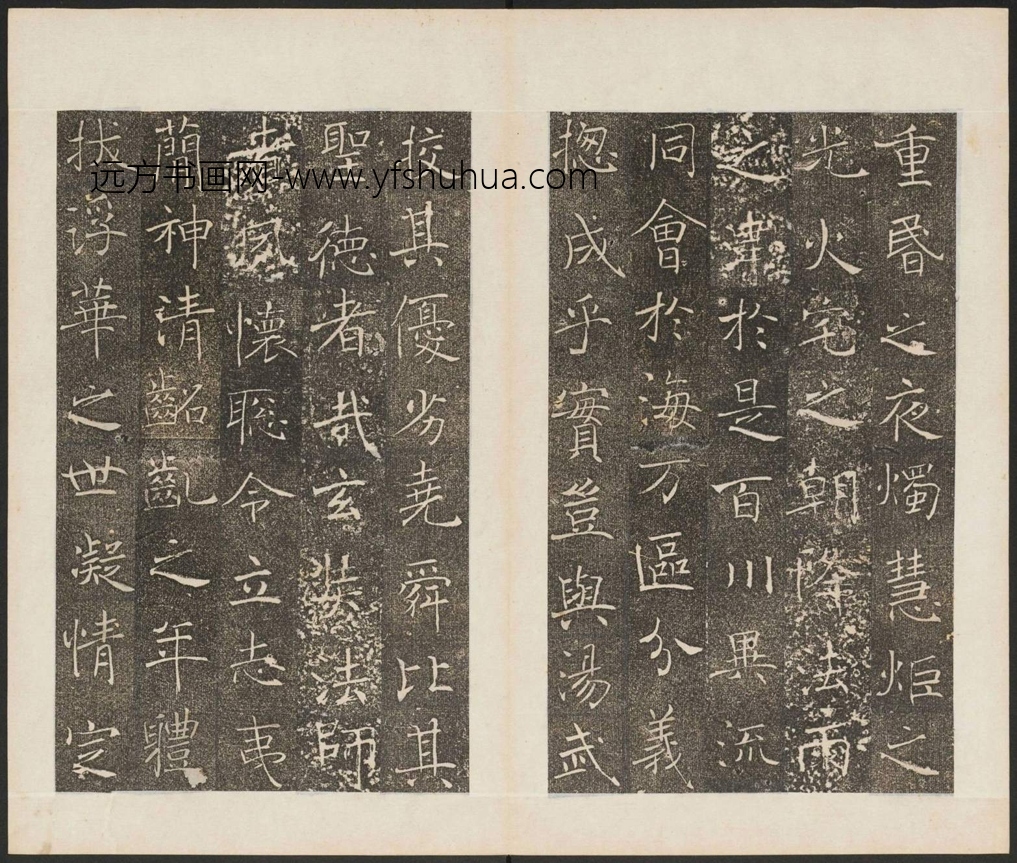 重昬之夜燭慧炬之
光火宅之朝降法雨
之澤於是百川異流
同會於海万區分義
揔成乎實豈與湯武
挍其優劣堯舜比其
聖徳者哉玄奘法師
者夙懷聦令立志夷
蕳神清齠齓之年體
拔浮華之世凝情定
远方书画网-www.yfshuhua.com